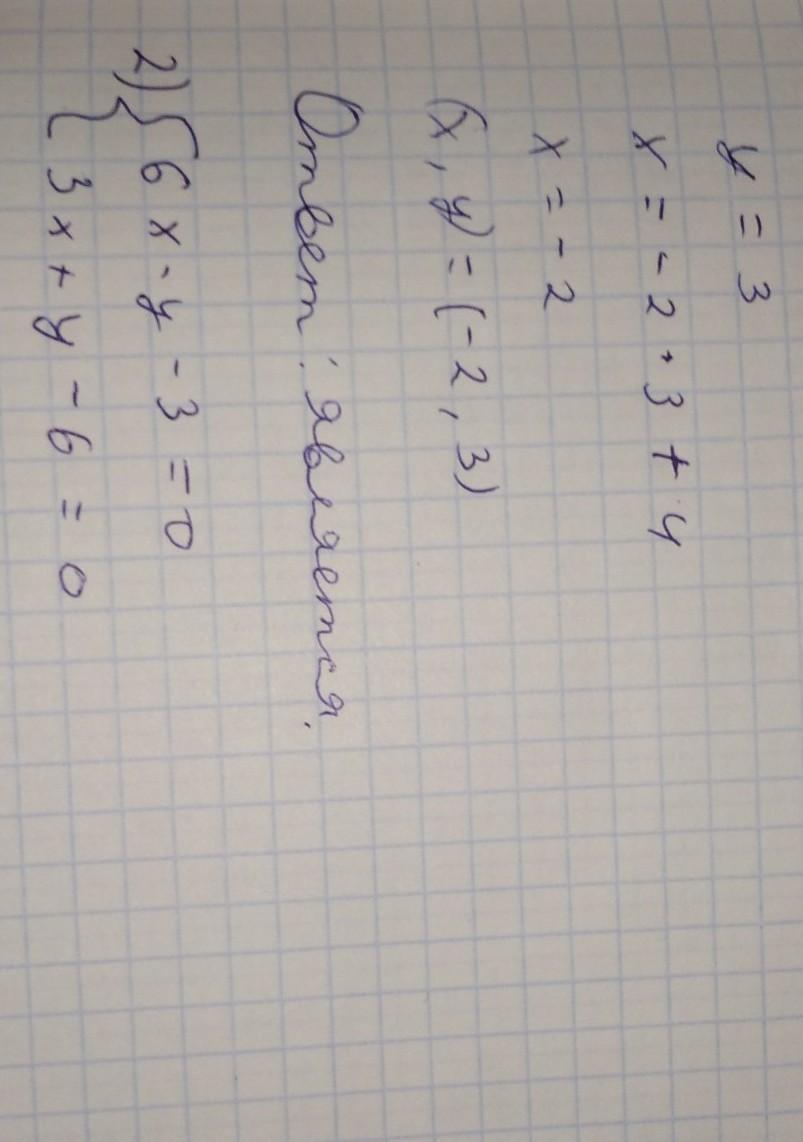 y = 3
x = -2 · 3 + 4
x = -2
(x, y) = (-2, 3)
Ответ: является.
2) { 6x - y - 3 = 0
{ 3x + y - 6 = 0